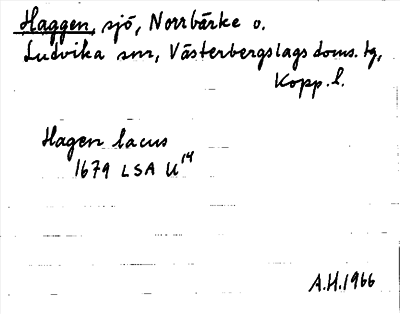 Haggen, sjö, Norrbärke o.
Ludvika snr, Västerbergslags doms. tg,
Kopp. l.
Hagen lacus
1679 LSA U¹⁴
A.H. 1966